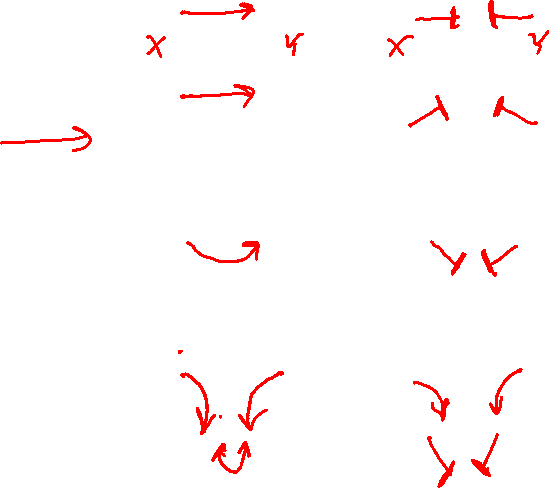 X Y X Y